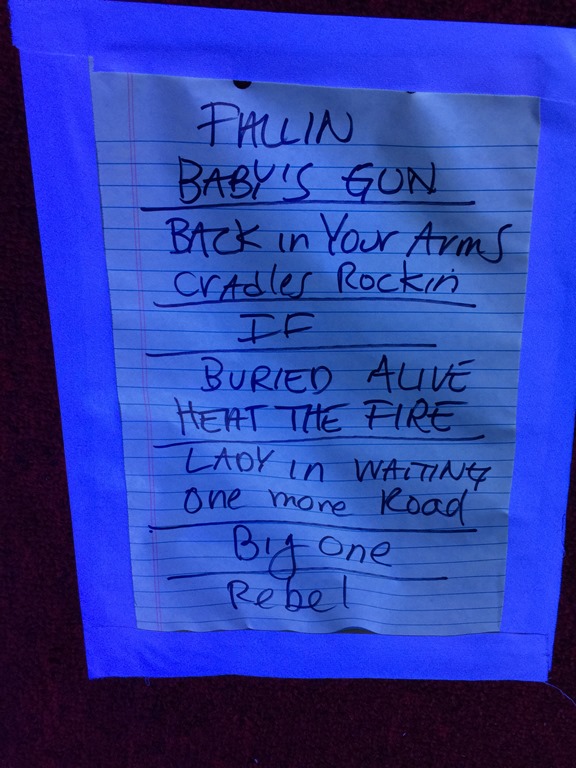 FALLIN
BABY'S GUN
BACK in Your Arms
CrAdles Rockin
IF
BURIED ALIVE
HEAT THE FIRE
LADY in WAITING
one more Road
Big One
Rebel